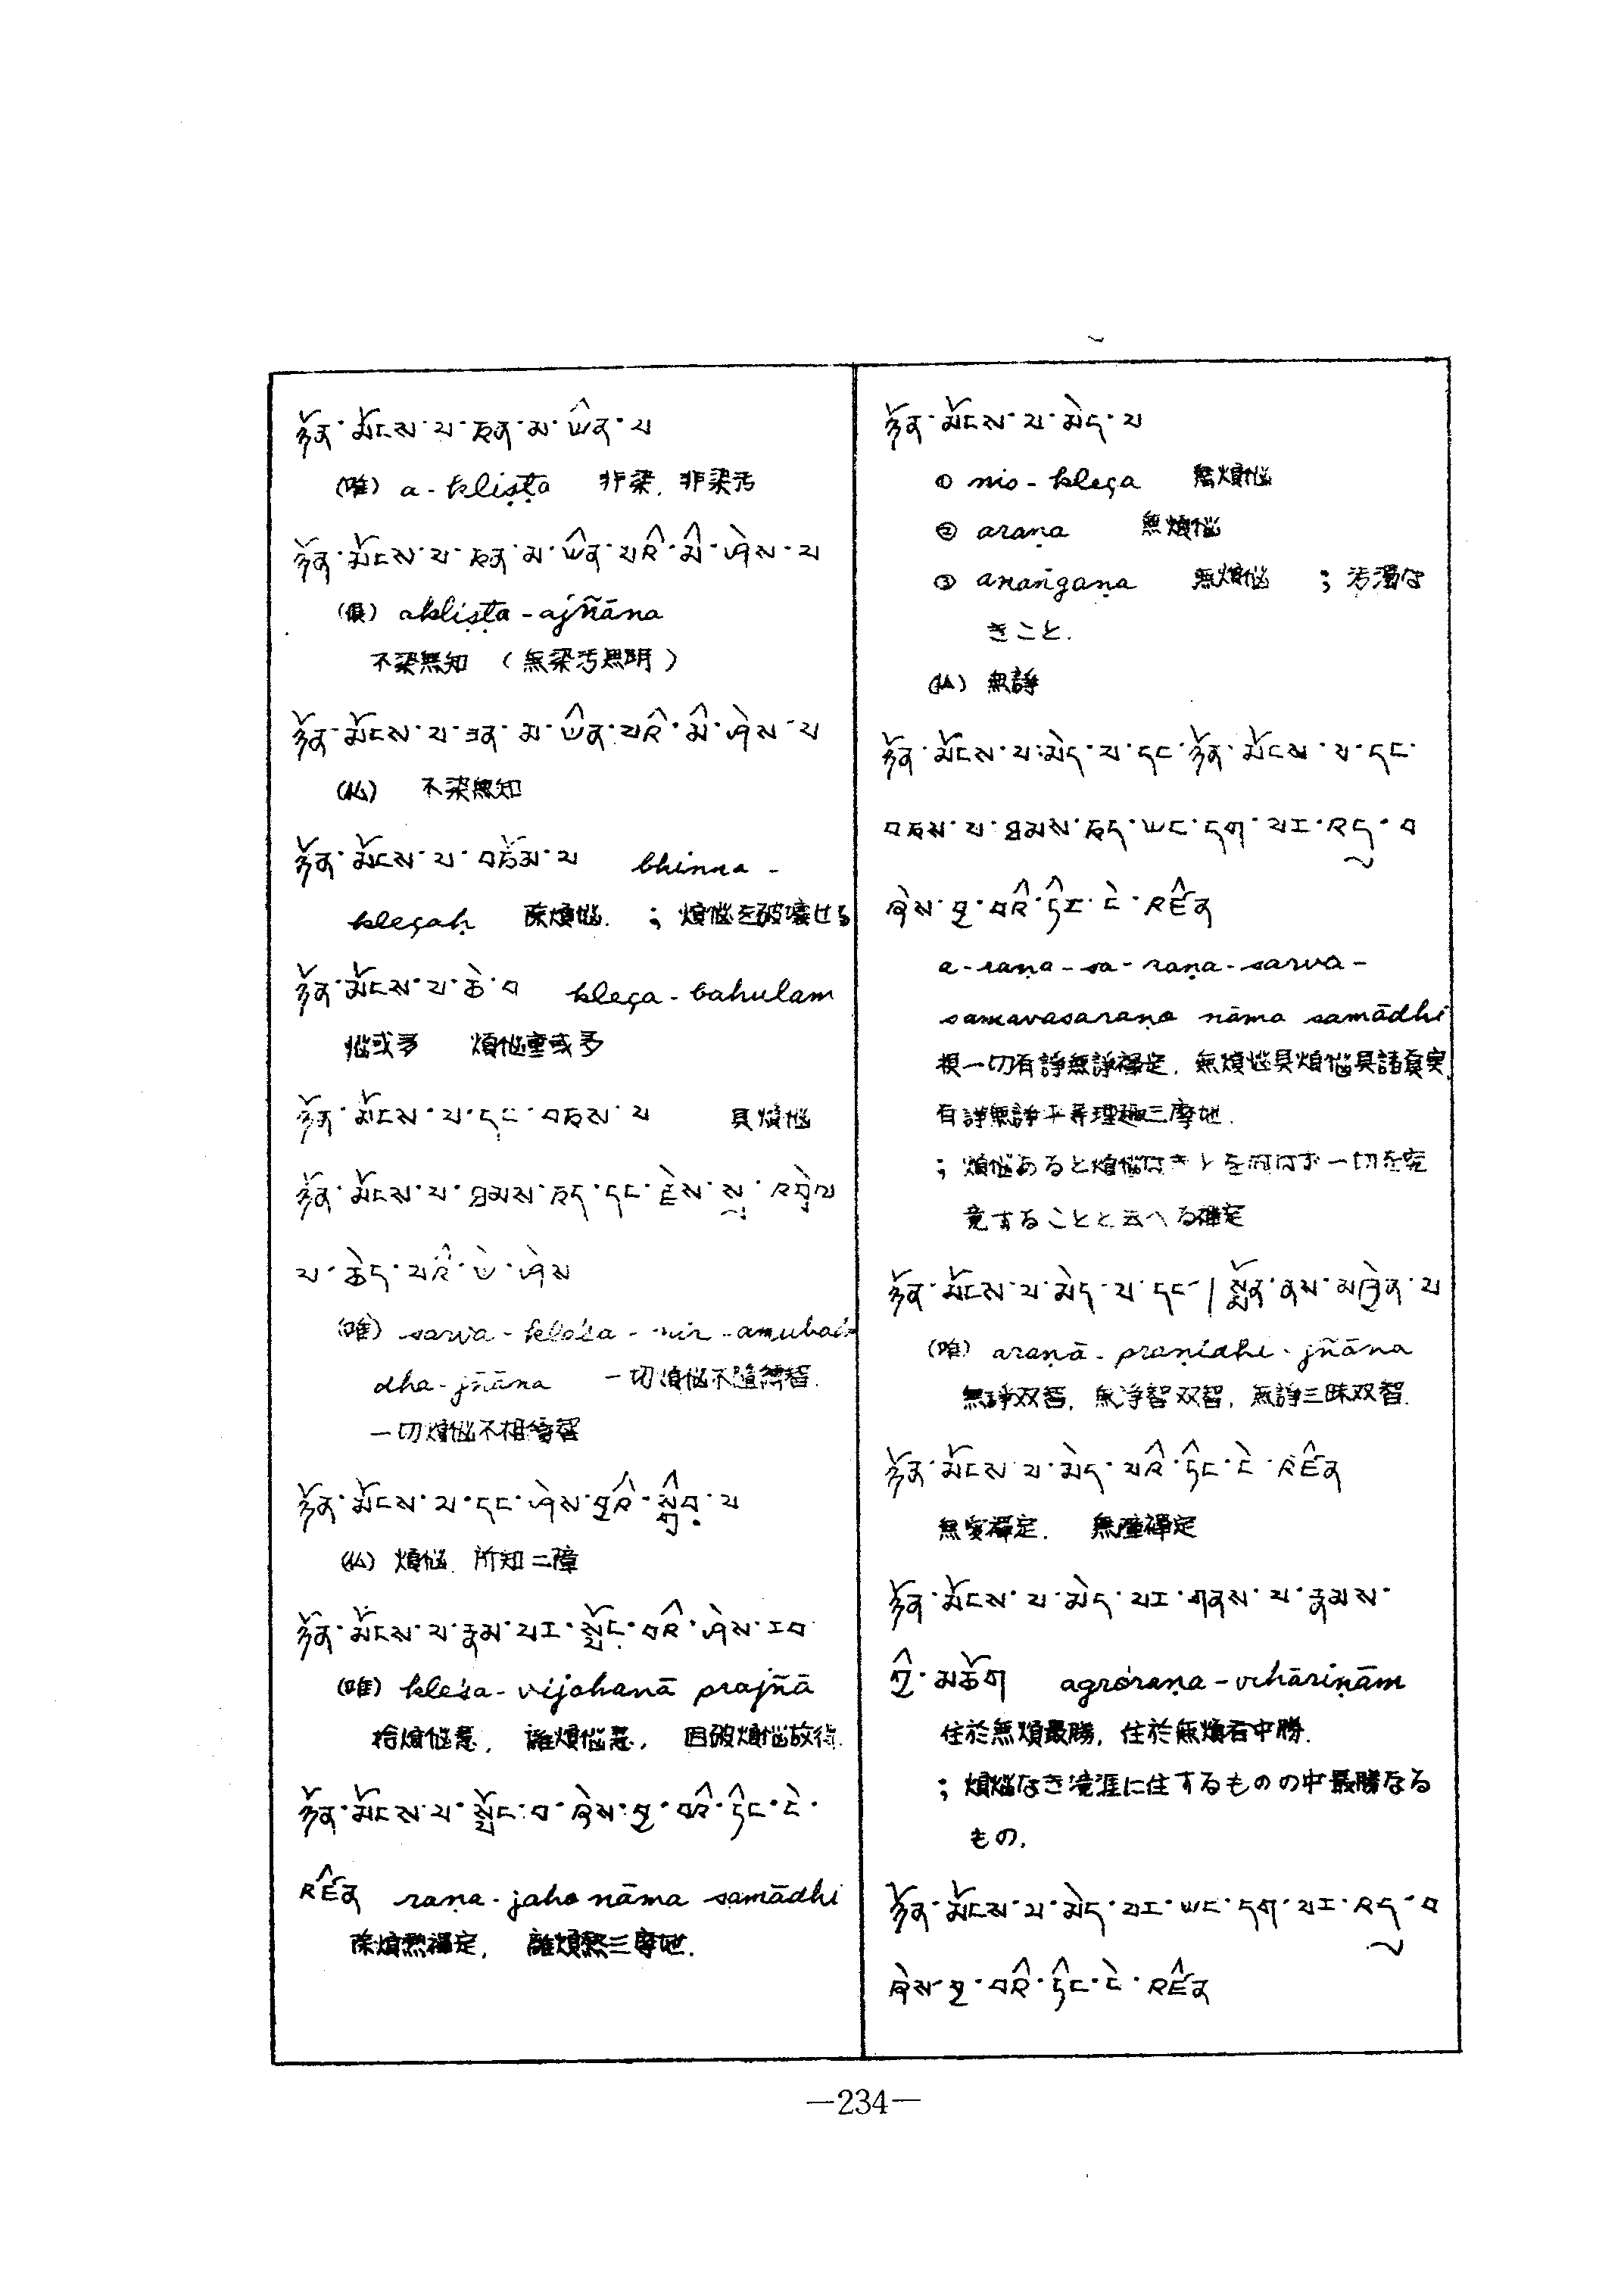 ཉོན་མོངས་པ་ཅན་མ་ཡིན་པ
(唯) a-kliṣṭa 非染, 非染汚
ཉོན་མོངས་པ་ཅན་མ་ཡིན་པའི་མི་ཤེས་པ
(倶) akliṣṭa-ajñāna
不染無知 (無染汚無明)
ཉོན་མོངས་པ་ཅན་མ་ཡིན་པའི་མི་ཤེས་པ
(仏) 不染無知
ཉོན་མོངས་པ་བཅོམ་པ bhinna-
kleçaḥ 除煩悩. ; 煩悩を破壊せる
ཉོན་མོངས་པ་ཆེ་བ kleça-bahulam
悩或多 煩悩重或多
ཉོན་མོངས་པ་དང་བཅས་པ 具煩悩
ཉོན་མོངས་པ་ཐམས་ཅད་དང་རྗེས་སུ་འབྲེལ
པ་ཆེད་པའི་ཡེ་ཤེས
(唯) sarva-kleśa-nir-anubad
dha-jñāna 一切煩悩不随縛智.
一切煩悩不相續智
ཉོན་མོངས་པ་དང་ཤེས་བྱའི་སྒྲིབ་པ
(仏) 煩悩. 所知二障
ཉོན་མོངས་པ་རྣམ་པར་སྤོང་བའི་ཤེས་རབ
(唯) kleśa-vijahanā prajñā
捨煩悩慧, 離煩悩慧, 因破煩悩故得.
ཉོན་མོངས་པ་སྤོང་བ་ཞེས་བྱ་བའི་ཏིང་ངེ་
འཛིན raṇa-jaho nāma samādhi
除煩熬禪定, 離煩熬三摩地.
ཉོན་མོངས་པ་མེད་པ
① nis-kleça 無煩悩
② araṇa 無煩悩
③ anaṅgaṇa 無煩悩 ; 汚濁な
きこと.
(仏) 無諍
ཉོན་མོངས་པ་མེད་པ་དང་ཉོན་མོངས་པ་དང་
བཅས་པ་ཐམས་ཅད་ཡང་དག་པར་འདུ་བ
ཞེས་བྱ་བའི་ཏིང་ངེ་འཛིན
a-raṇa-sa-raṇa-sarva-
samavasaraṇo nāma samādhi
根一切有諍無諍禪定, 無煩悩具煩悩具諸真実,
有諍無諍平等理趣三摩地.
; 煩悩あると煩悩なきとを問はず一切を究
竟することと云へる禪定
ཉོན་མོངས་པ་མེད་པ་དང་།སྨོན་ནས་མཁྱེན་པ
(唯) araṇā-praṇidhi-jñāna
無諍双智, 無浄智双智, 無諍三昧双智.
ཉོན་མོངས་པ་མེད་པའི་ཏིང་ངེ་འཛིན
無安禪定. 無障禪定
ཉོན་མོངས་པ་མེད་པར་གནས་པ་རྣམས་
ཀྱི་མཆོག agroraṇa-vihāriṇām
住於無煩最勝, 住於無煩者中勝.
; 煩悩なき境涯に住するものの中最勝なる
もの.
ཉོན་མོངས་པ་མེད་པར་ཡང་དག་པར་འདུ་བ
ཞེས་བྱ་བའི་ཏིང་ངེ་འཛིན
—234—